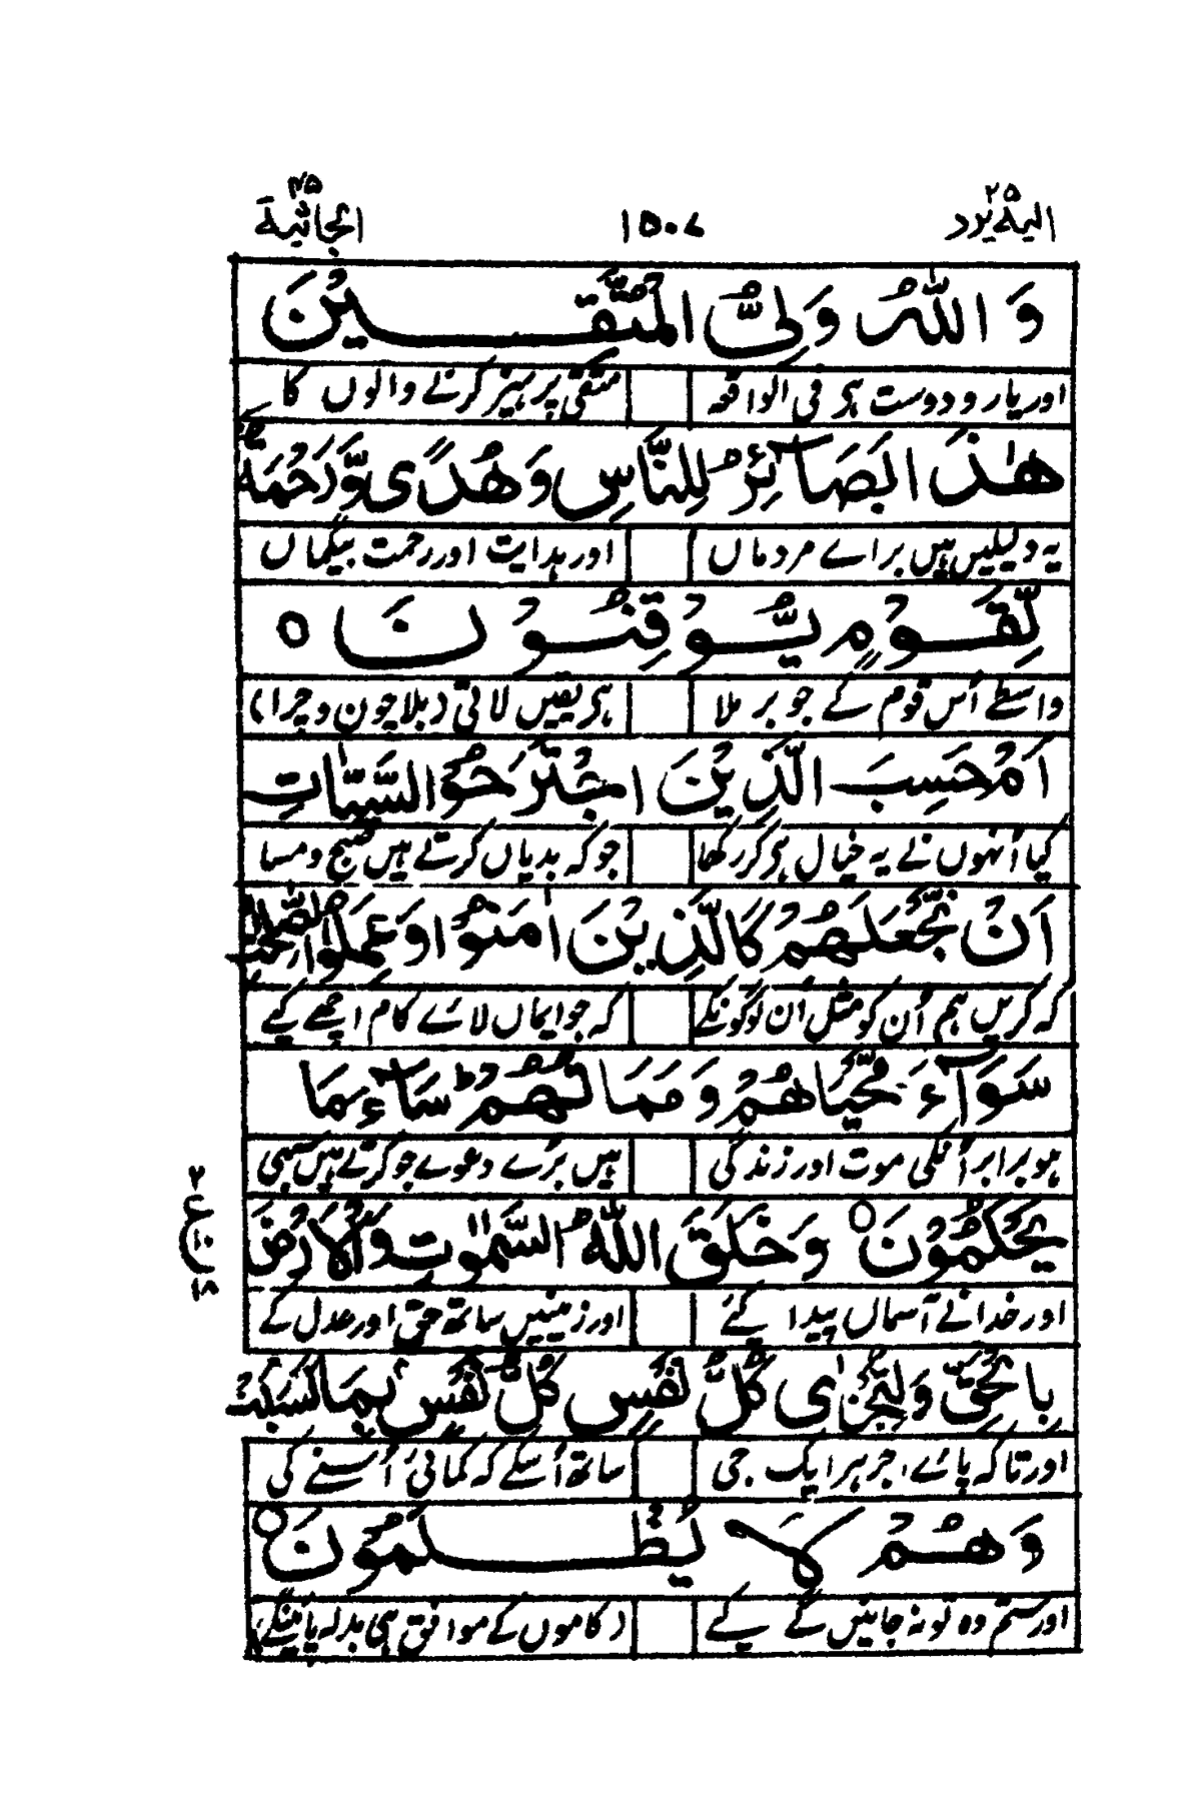 الیہ یرد ۲۵ ۱۵۰۷ الجاثیۃ ۴۵
وَ اللّٰهُ وَلِیُّ الْمُتَّقِیْنَ
اور یار و دوست ہی فی الواقعہ متقی پرہیز کرنے والوں کا
هٰذَا بَصَآئِرُ لِلنَّاسِ وَ هُدًی وَّ رَحْمَةٌ
یہ دلیلیں ہیں براے مردماں اور ہدایت اور رحمت بیگماں
لِّقَوْمٍ یُّوْقِنُوْنَ ○
واسطے اُس قوم کے جو بر ملا ہی یقیں لاتی (بلا چون و چرا)
اَمْ حَسِبَ الَّذِیْنَ اجْتَرَحُوا السَّیِّاٰتِ
کیا اُنہوں نے یہ خیال ہی کر رکھا جو کہ بدیاں کرتے ہیں صبح و مسا
اَنْ نَّجْعَلَهُمْ كَالَّذِیْنَ اٰمَنُوْا وَ عَمِلُوا الصّٰلِحٰتِ
کہ کریں ہم اُن کو مثل اُن لوگونکے کہ جو ایماں لائے کام اچھے کیے
سَوَآءً مَّحْیَاهُمْ وَ مَمَاتُهُمْ ط سَآءَ مَا
ہو برابر اُنکی موت اور زندگی ہیں بُرے دعوے جو کرتے ہیں سبھی
یَحْكُمُوْنَ ○ وَ خَلَقَ اللّٰهُ السَّمٰوٰتِ وَ الْاَرْضَ
اور خدا نے آسماں پیدا کئے اور زمینیں ساتھ حق اور عدل کے
بِالْحَقِّ وَ لِتُجْزٰی كُلُّ نَفْسٍ كُلُّ نَفْسٍۭ بِمَا كَسَبَتْ
اور تاکہ پائے اجر ہر ایک جی ساتھ اُسکے کہ کمائی اُسنے کی
وَ هُمْ لَا یُظْلَمُوْنَ ○
اور ستم وہ تو نہ جائیں گے کیے (کاموں کے موافق ہی بدلہ پائینگے)